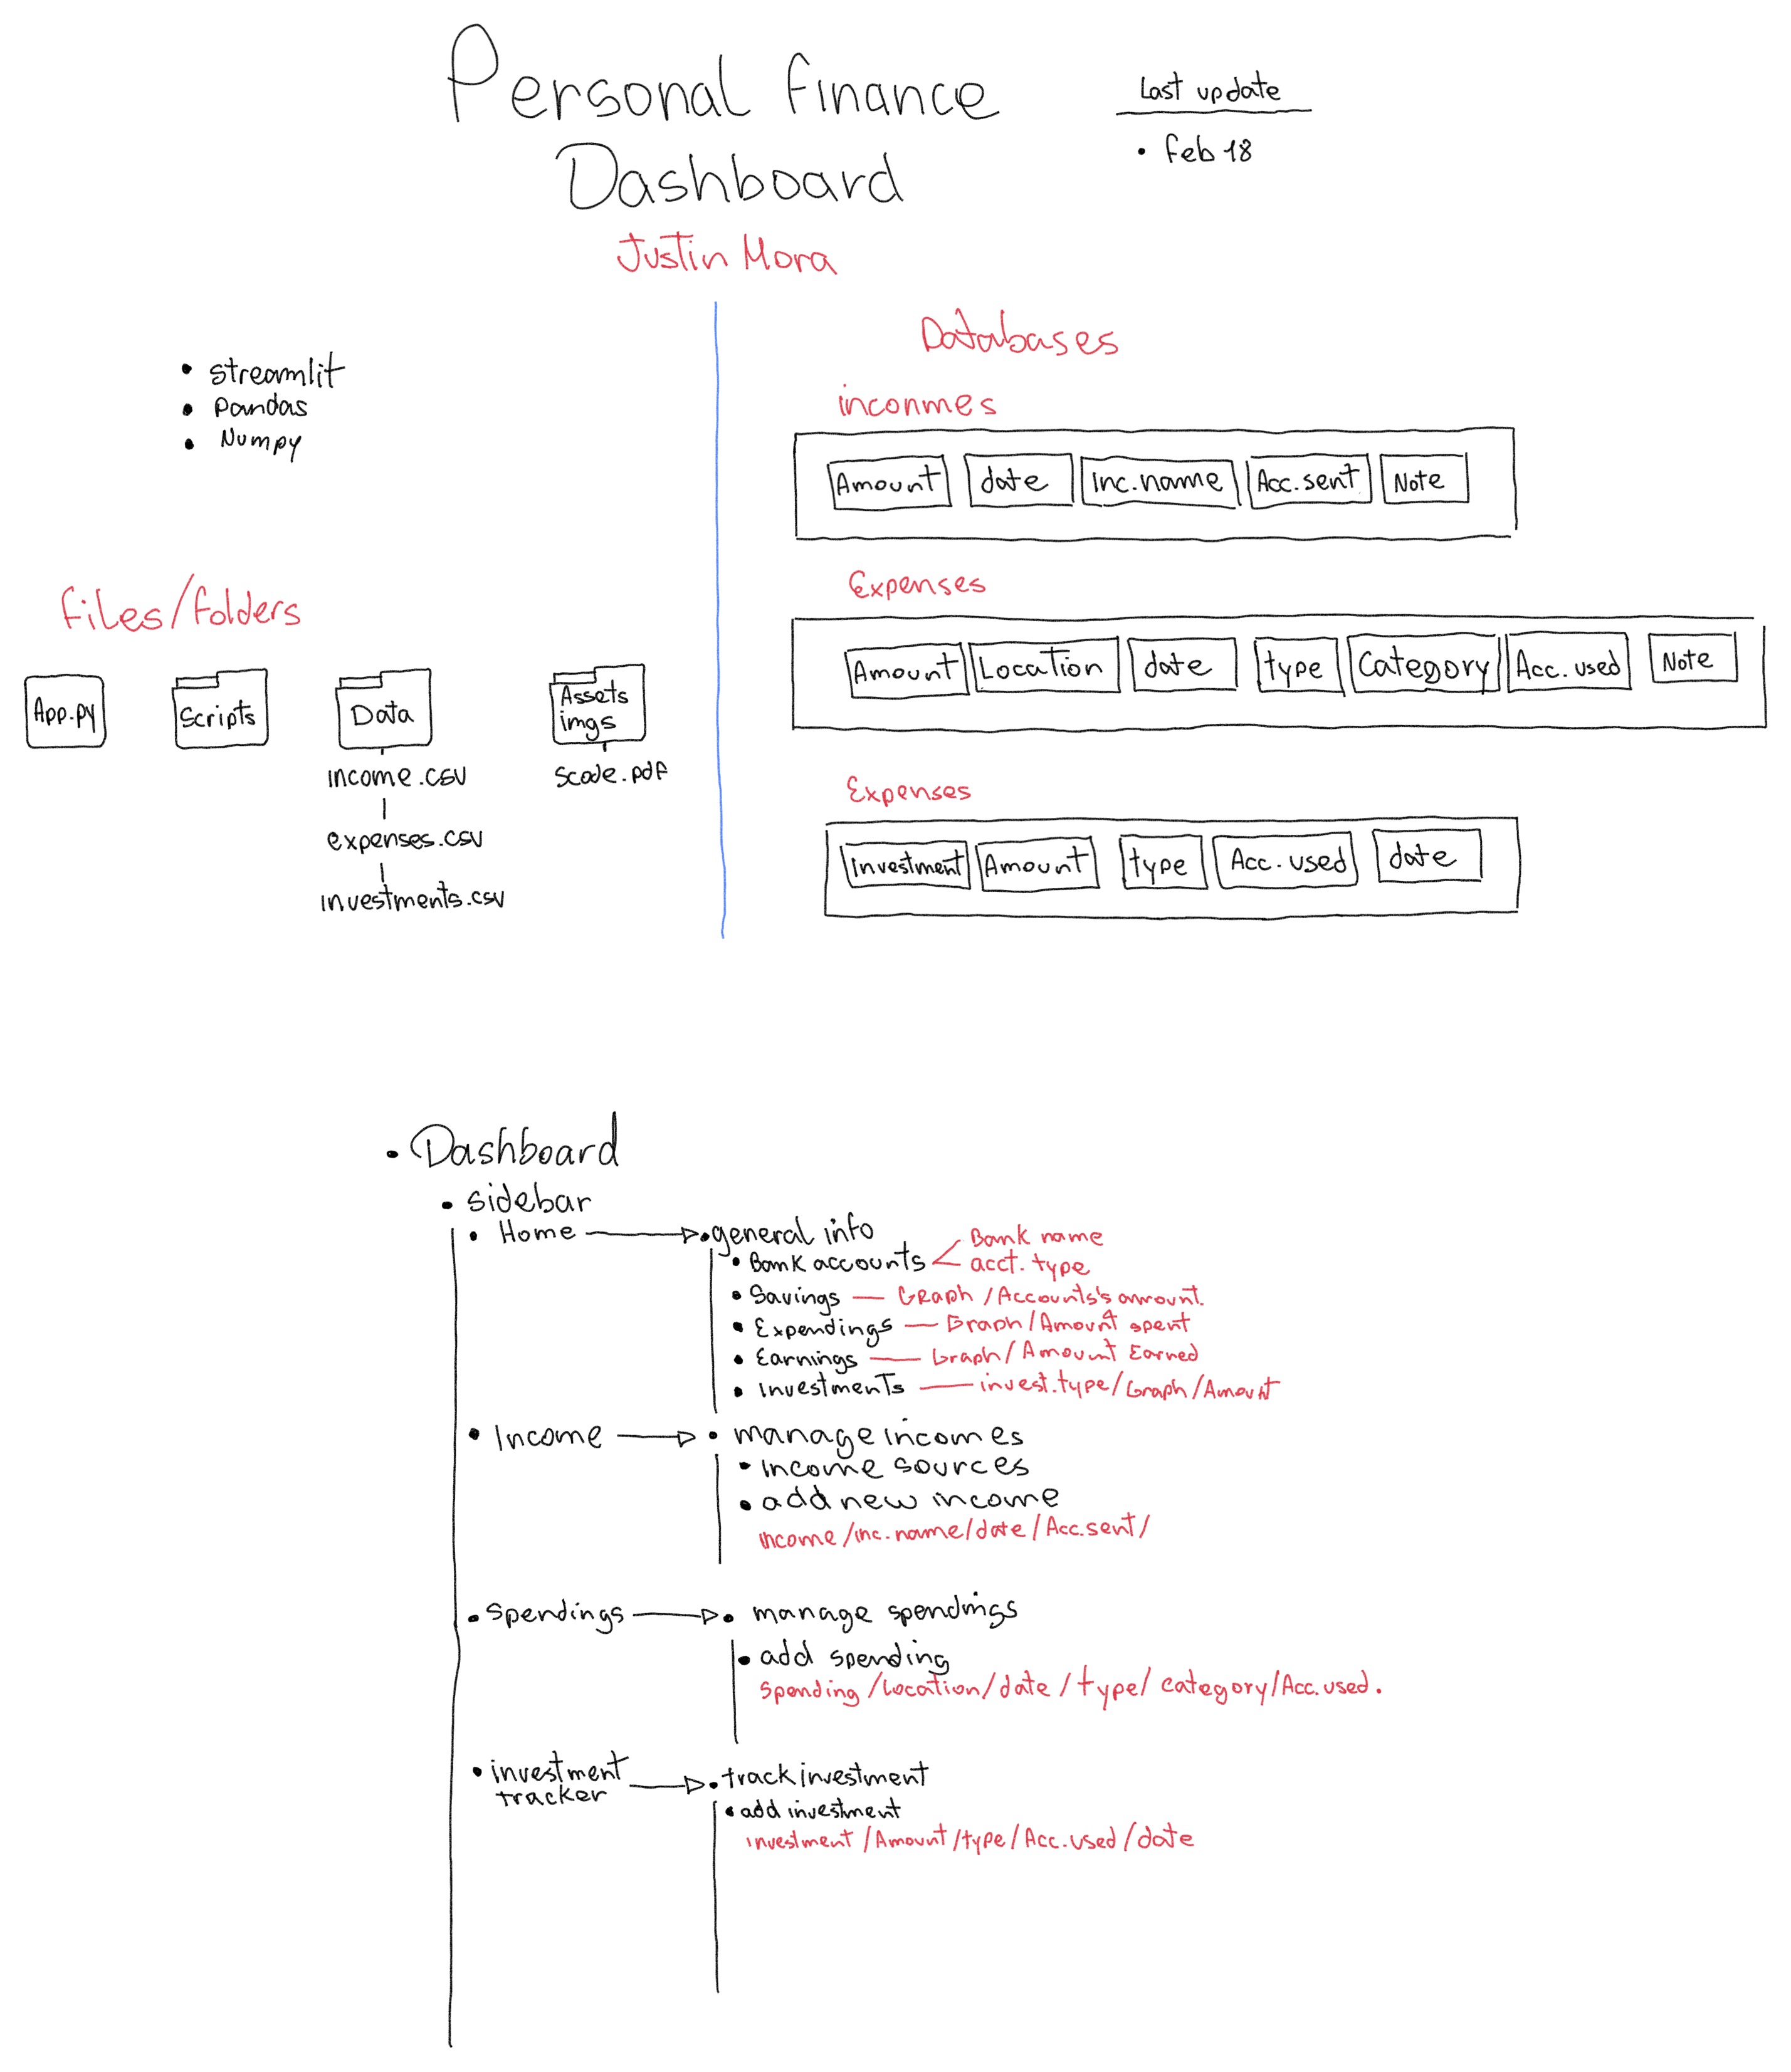 Personal finance
Dashboard
Last update
• feb 18
Justin Mora
• streamlit
• Pandas
• Numpy
files/folders
App.py
Scripts
Data
income.csv
expenses.csv
investments.csv
Assets
imgs
scode.pdf
Databases
inconmes
Amount date Inc.name Acc.sent Note
Expenses
Amount Location date type Category Acc.used Note
Expenses
Investment Amount type Acc.used date
• Dashboard
• sidebar
• Home
• general info
• Bank accounts
Bank name
acct. type
• Savings — Graph /Accounts's amount.
• Expendings — Graph/Amount spent
• Earnings — Graph/ Amount Earned
• Investments — invest.type/Graph/Amount
• Income
• manage incomes
• income sources
• add new income
income/inc.name/date/Acc.sent/
• Spendings
• manage spendings
• add spending
Spending /Location/date/type/category/Acc.used.
• investment
tracker
• track investment
• add investment
investment/Amount/type/Acc.used/date